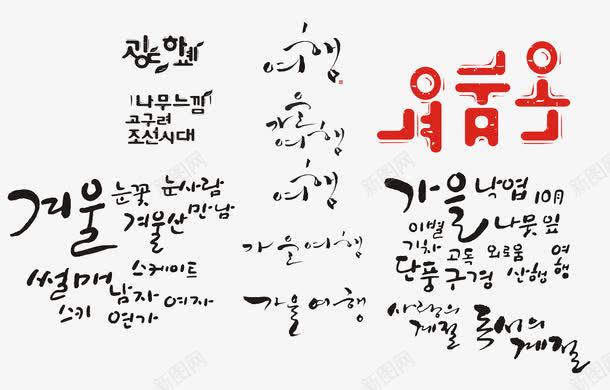 여행
나무느낌
고구려
조선시대
가을
여행
여행
가을여행
가을여행
겨울
눈꽃 눈사람
겨울산 만남
썰매 스케이트
남자 여자
스키 연가
가을
낙엽 10月
이별 나뭇잎
기차 고독 외로움 여행
단풍 구경 산행
사랑의
계절
독서의
계절